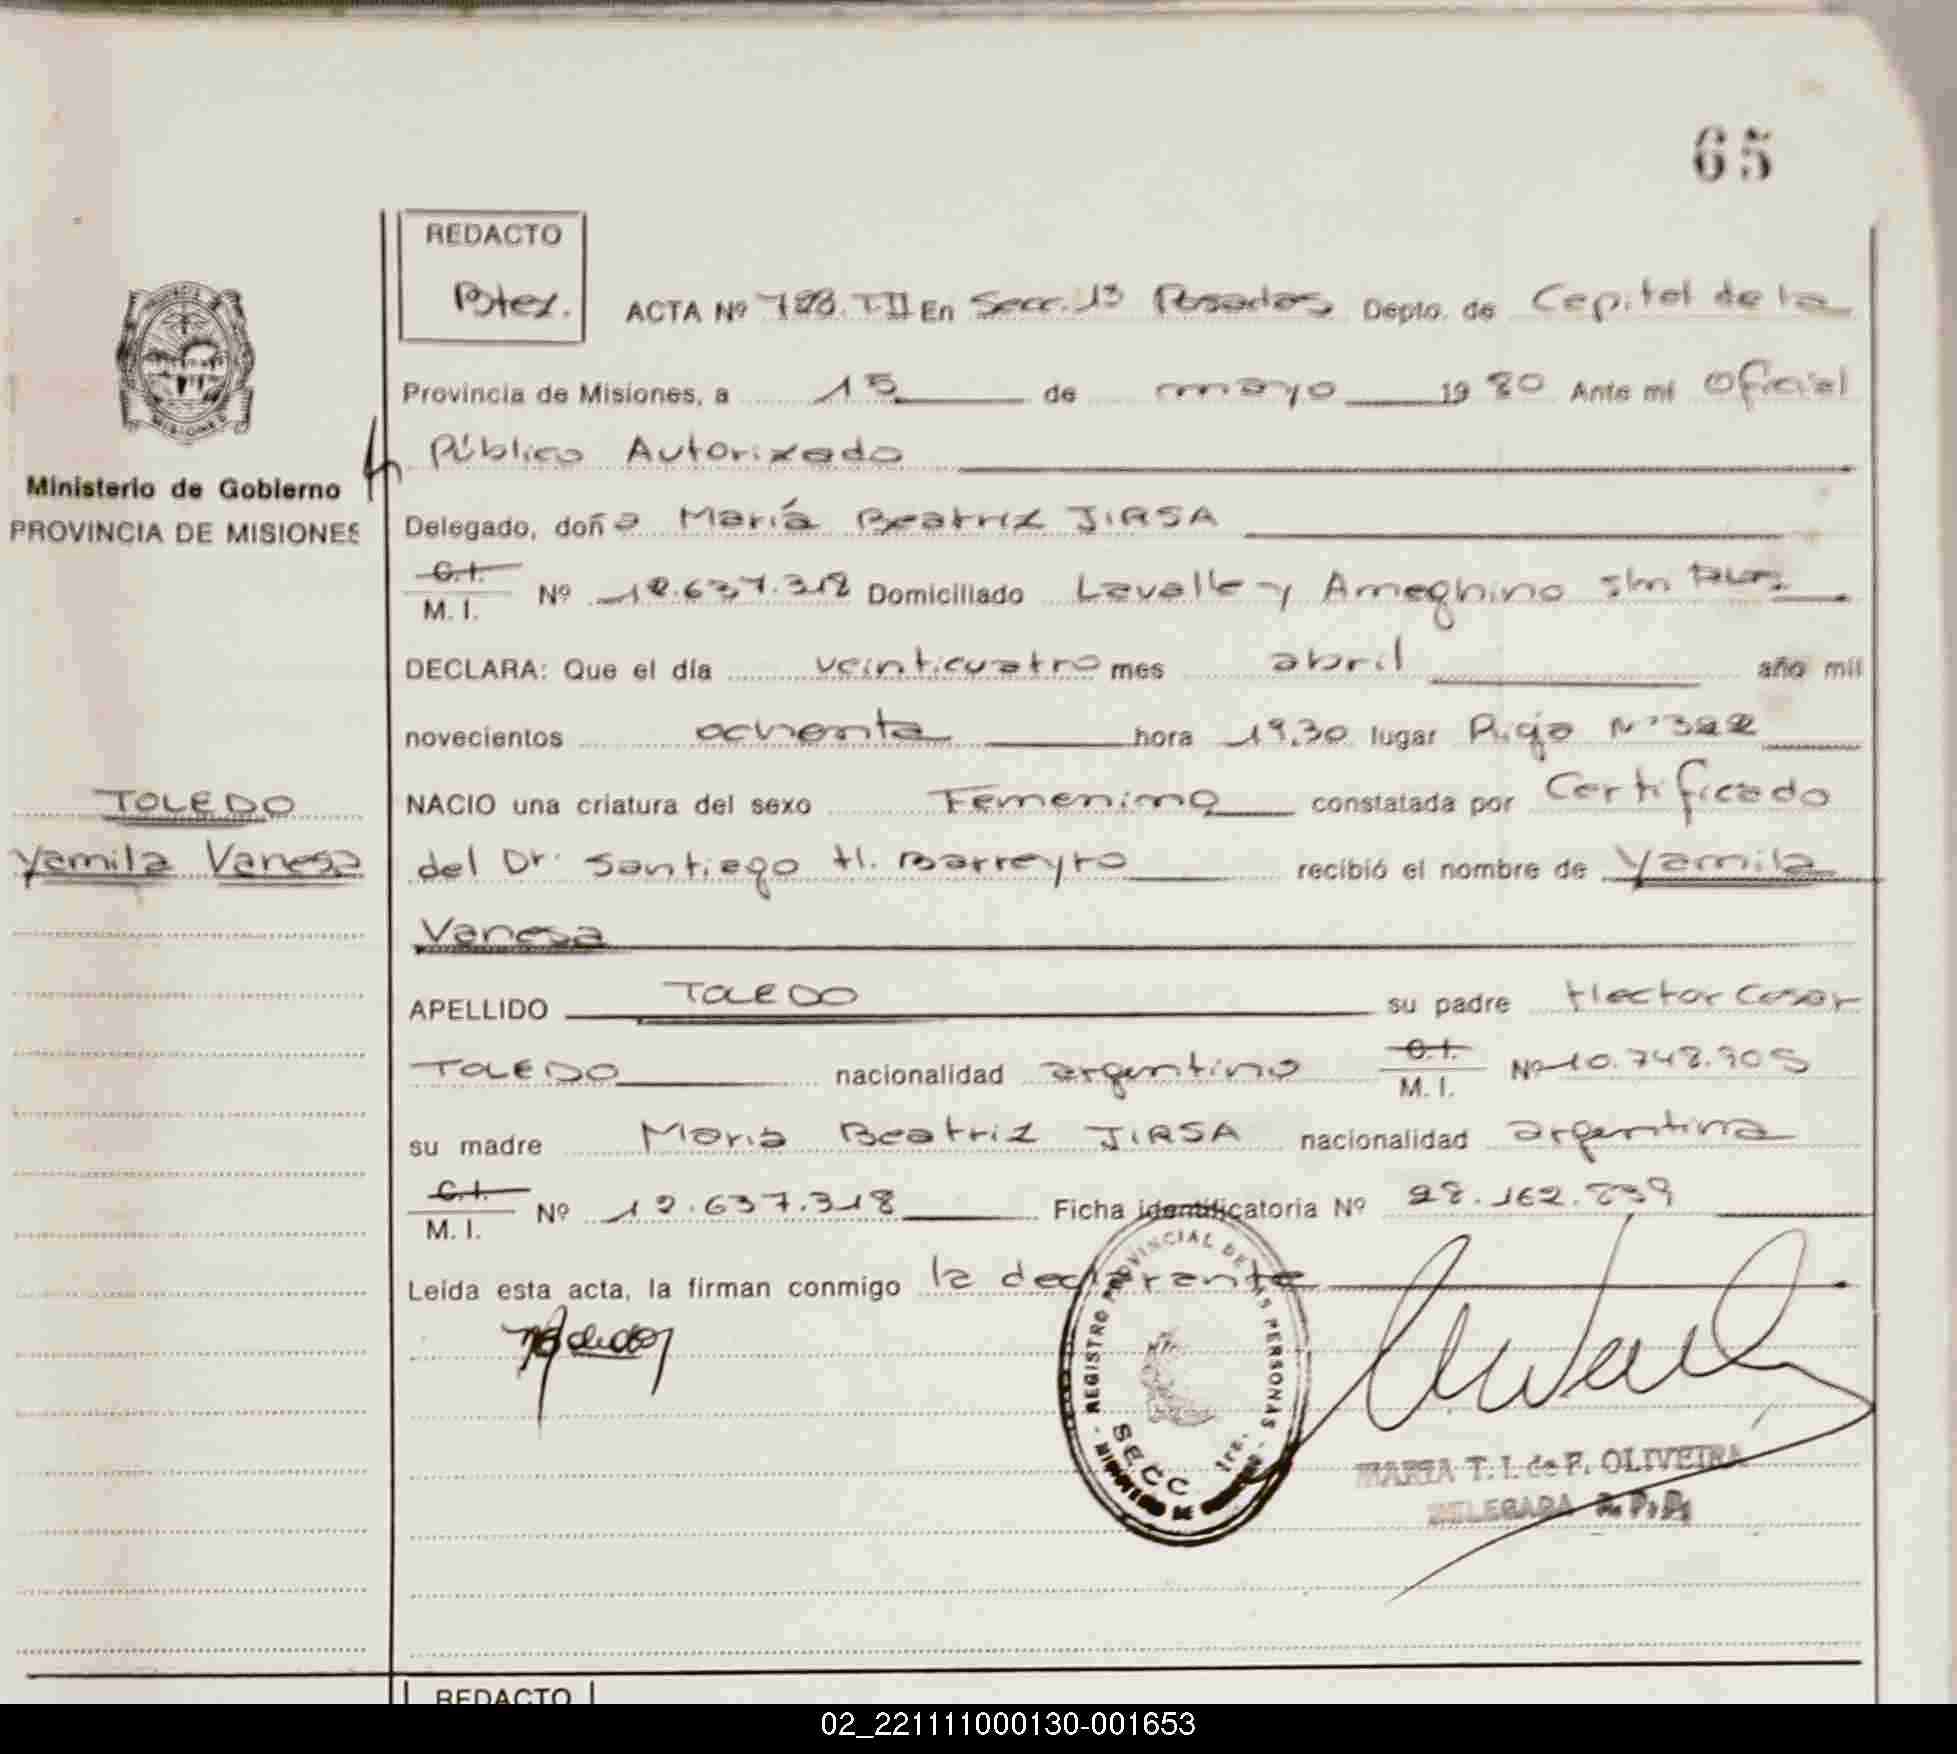 65
REDACTO
ACTA Nº 788. T.II En Secc. 13 Posadas Depto. de Capital de la
Provincia de Misiones, a 15 de mayo 1980 Ante mi Oficial
Público Autorizado
Ministerio de Gobierno
PROVINCIA DE MISIONES
Delegado, doña María Beatriz JIRSA
C.I.
M. I. Nº 12.637.318 Domiciliado Lavalle y Ameghino s/n
DECLARA: Que el día veinticuatro mes abril año mil
novecientos ochenta hora 19,30 lugar Rioja Nº 322
TOLEDO
Yamila Vanesa
NACIO una criatura del sexo Femenino constatada por Certificado
del Dr. Santiago H. Barreyro recibió el nombre de Yamila
Vanesa
APELLIDO TOLEDO su padre Hector Cesar
TOLEDO nacionalidad argentino C.I. M. I. Nº 10.748.905
su madre María Beatriz JIRSA nacionalidad argentina
C.I.
M. I. Nº 12.637.318 Ficha identificatoria Nº 28.162.839
Leída esta acta, la firman conmigo la declarante
REGISTRO PROVINCIAL DE LAS PERSONAS
SECC 1ra.
MARIA T. I. de F. OLIVEIRA
DELEGADA R. P. P.
REDACTO
02_221111000130-001653